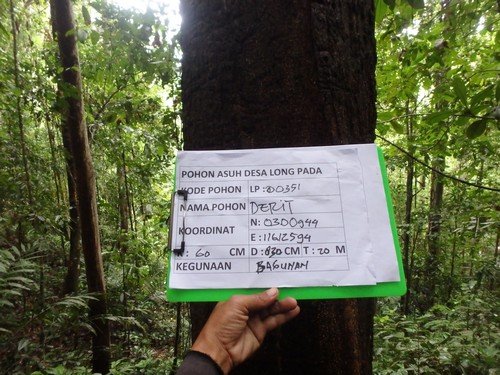 POHON ASUH DESA LONG PADA
KODE POHON LP : 00351
NAMA POHON DERIT
KOORDINAT N: 0300944
E: 11612594
: 60 CM D : 030 CM T : 20 M
KEGUNAAN BAGUNAN